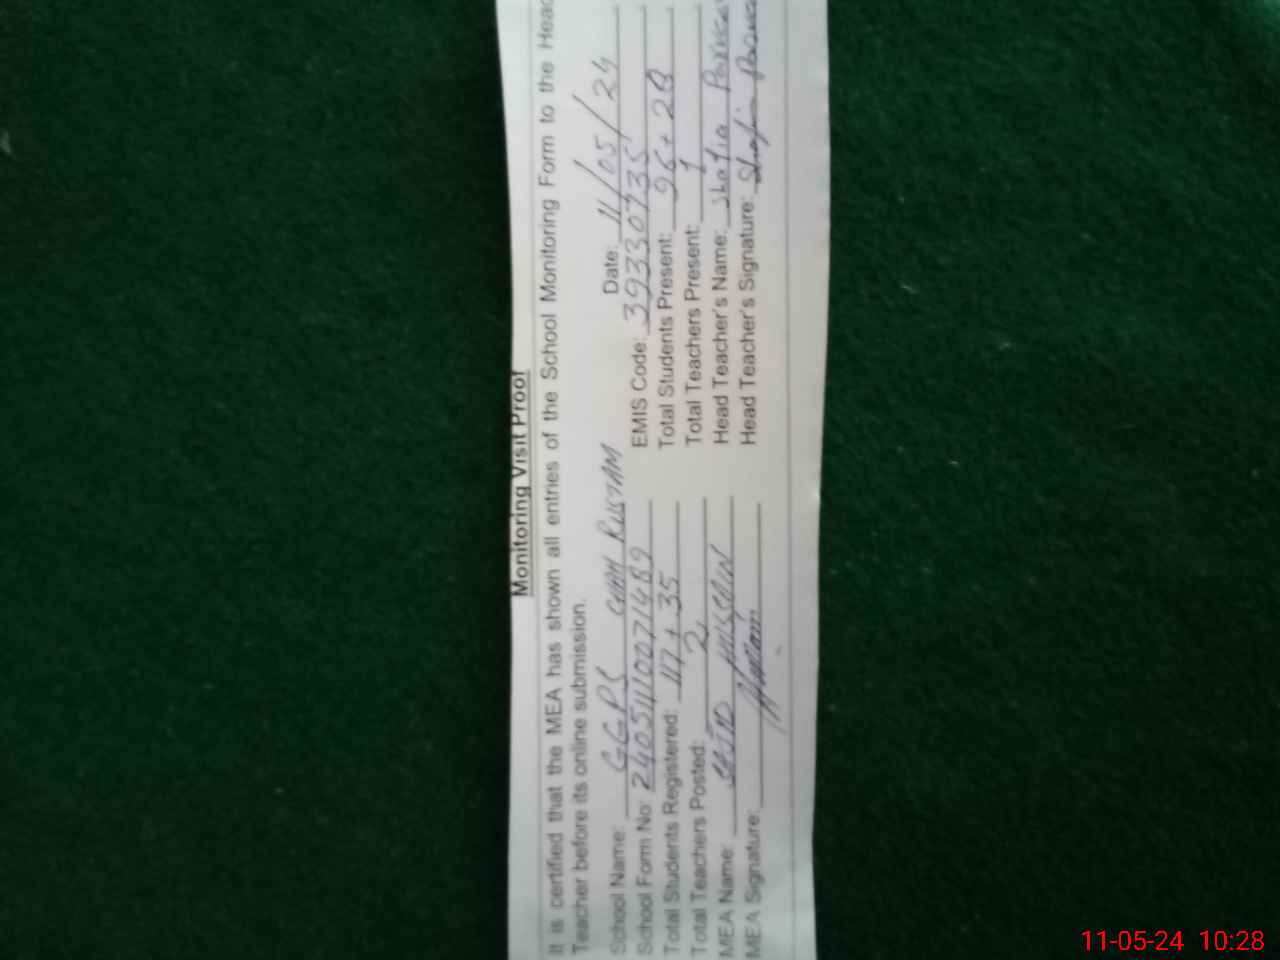 Monitoring Visit Proof
It is certified that the MEA has shown all entries of the School Monitoring Form to the Head
Teacher before its online submission.
School Name: GGPS CHAH RUSTAM Date: 11/05/24
School Form No: 2405111007148 9 EMIS Code: 39330735
Total Students Registered: 117+35 Total Students Present: 96+28
Total Teachers Posted: 2 Total Teachers Present: 1
MEA Name: SAJID HUSSAIN Head Teacher's Name: Shafia Parveen
MEA Signature: Head Teacher's Signature:
11-05-24 10:28